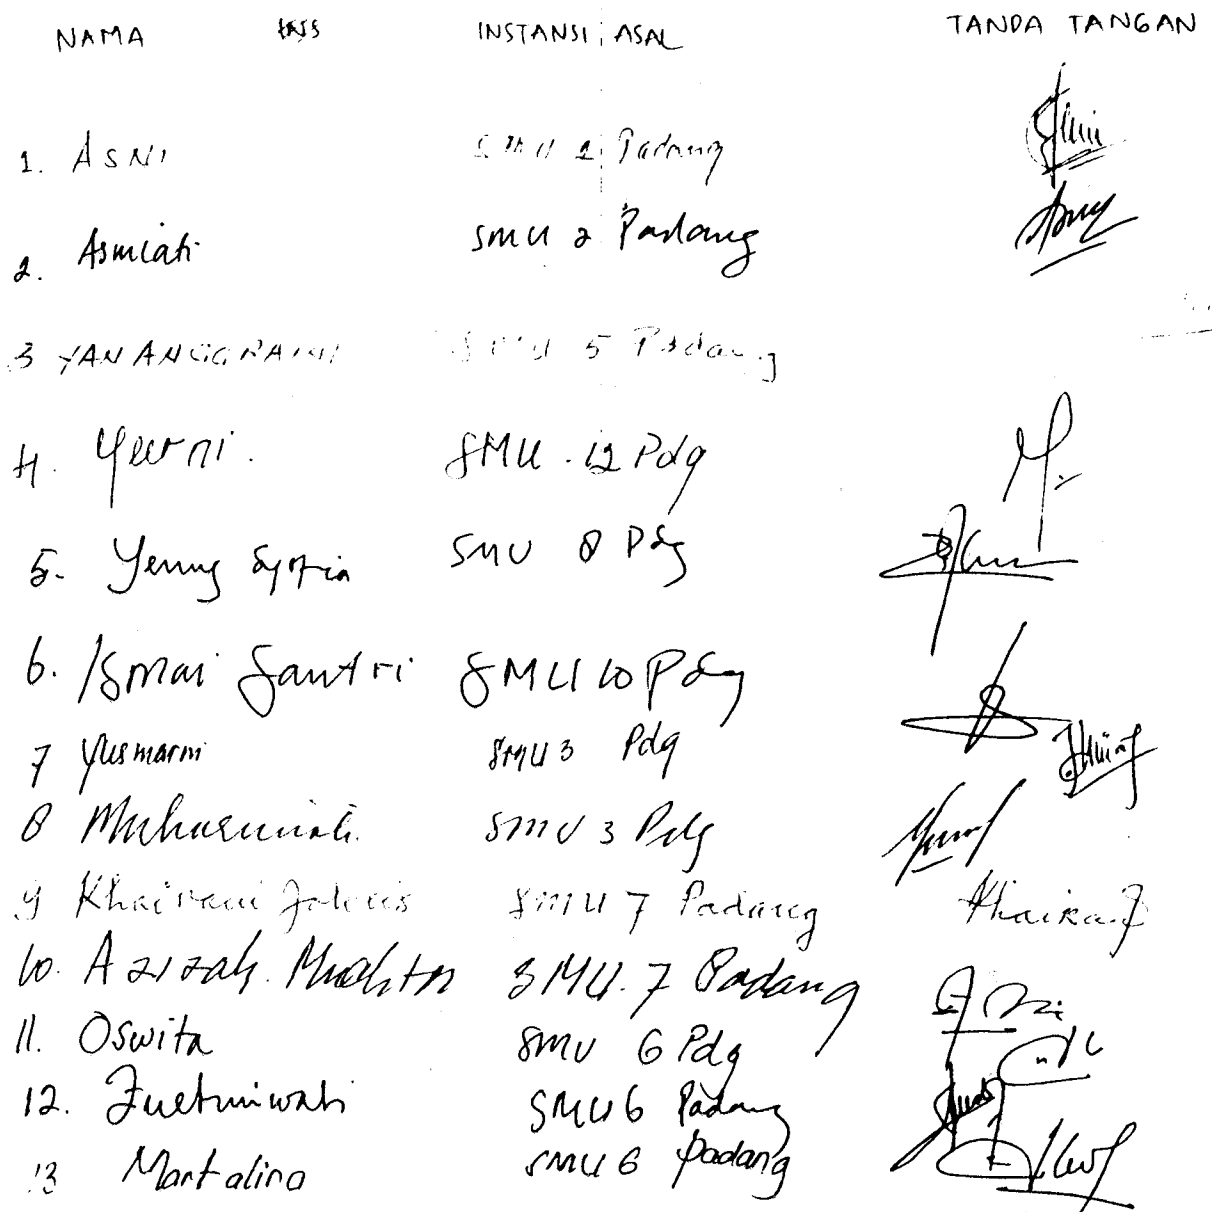 NAMA INSTANSI ASAL TANDA TANGAN
1. ASNI SMU 2 Padang
2. Asmiati SMU 2 Padang
3 YAN ANGGRAINI SMU 5 Padang
4. Yurni. SMU. 12 Pdg
5. Yenny Syofia SMU 8 Pdg
6. Ismai Santri SMU 10 Pdg
7 Yusmarni SMU 3 Pdg
8 SMU 3 Pdg
9 Khairani SMU 7 Padang Khaira
10. Azizah. Muchtar SMU. 7 Padang
11. Oswita SMU 6 Pdg
12. SMU 6 Padang
13 Martalina SMU 6 Padang